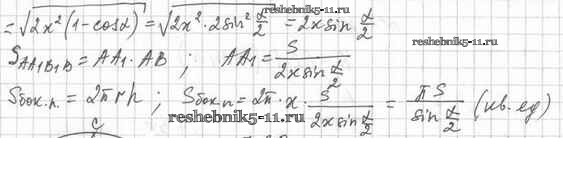 = √(2x²(1-cosα)) = √(2x²·2sin²α/2) = 2x sin α/2
reshebnik5-11.ru
S_AA1B1B = AA1 · AB ; AA1 = S/(2x sin α/2)
reshebnik5-11.ru
Sбок.п. = 2πrh ; Sбок.п = 2π · x · S/(2x sin α/2) = πS/(sin α/2) (кв. ед)
reshebnik5-11.ru
C